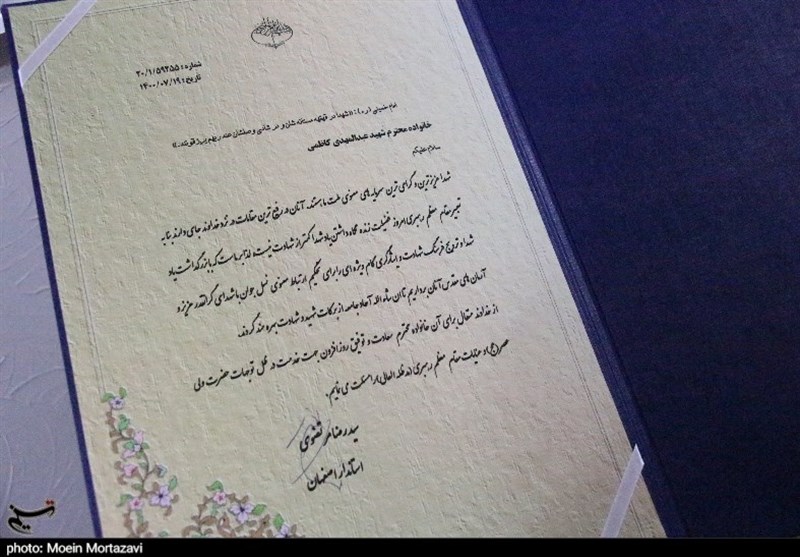 شماره: ۲۰/۱/۵۹۲۵۵
تاریخ: ۱۴۰۰/۰۷/۱۹
امام خمینی (ره): «شهدا در قهقهه مستانه شان و در شادی وصلشان عند ربهم یرزقونند.»
خانواده محترم شهید عبدالمهدی کاظمی
سلام علیکم
شهدا عزیزترین و گرامی ترین سرمایه های معنوی ملت ما هستند. آنان در رفیع ترین مقامات در نزد خداوند جای دارند بنا به
تعبیر مقام معظم رهبری امروز فضیلت زنده نگاه داشتن یاد شهدا کمتر از شهادت نیست لذا بر ماست که با بزرگداشت یاد
شهدا و ترویج فرهنگ شهادت و ایثارگری گام ویژه ای را برای تحکیم ارتباط معنوی نسل جوان با شهدای گرانقدر عزیز و
آرمان های مقدس آنان برداریم تا ان شاء الله آحاد جامعه از برکات شهید و شهادت بهره مند گردند.
از خداوند متعال برای آن خانواده محترم سعادت و توفیق روزافزون جهت خدمت در ظل توجهات حضرت ولی
عصر(عج) و عنایات مقام معظم رهبری (مدظله العالی) را مسئلت می نمایم.
سیدرضا مرتضوی
استاندار اصفهان
تسنیم
photo: Moein Mortazavi